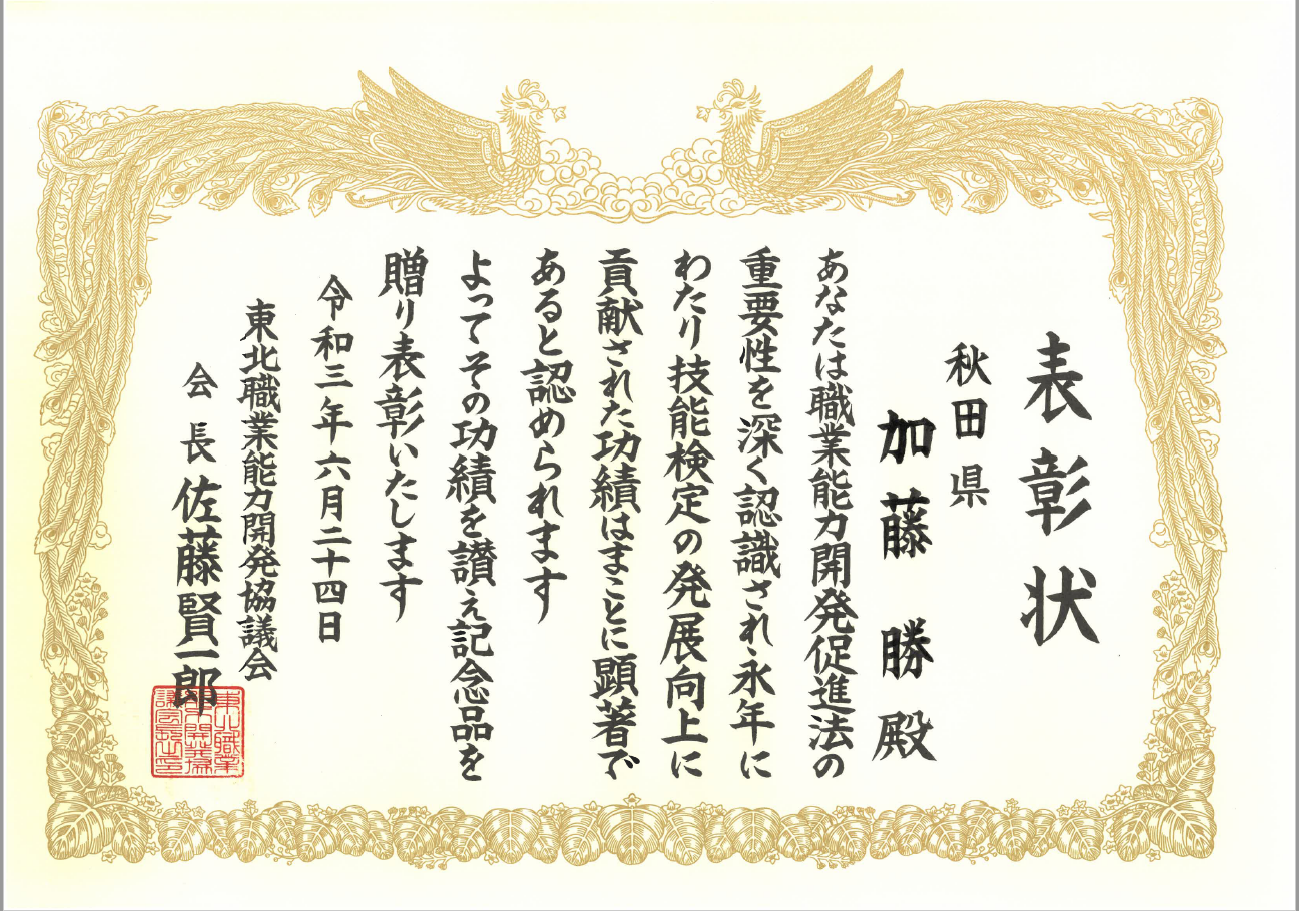 表彰状
秋田県
加藤 勝 殿
あなたは職業能力開発促進法の
重要性を深く認識され永年に
わたり技能検定の発展向上に
貢献された功績はまことに顕著で
あると認められます
よってその功績を讃え記念品を
贈り表彰いたします
令和三年六月二十四日
東北職業能力開発協議会
会長 佐藤賢一郎